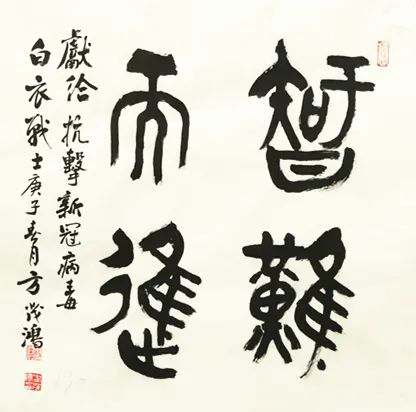 智難
而進
獻給抗擊新冠病毒
白衣戰士庚子春月方茂鴻